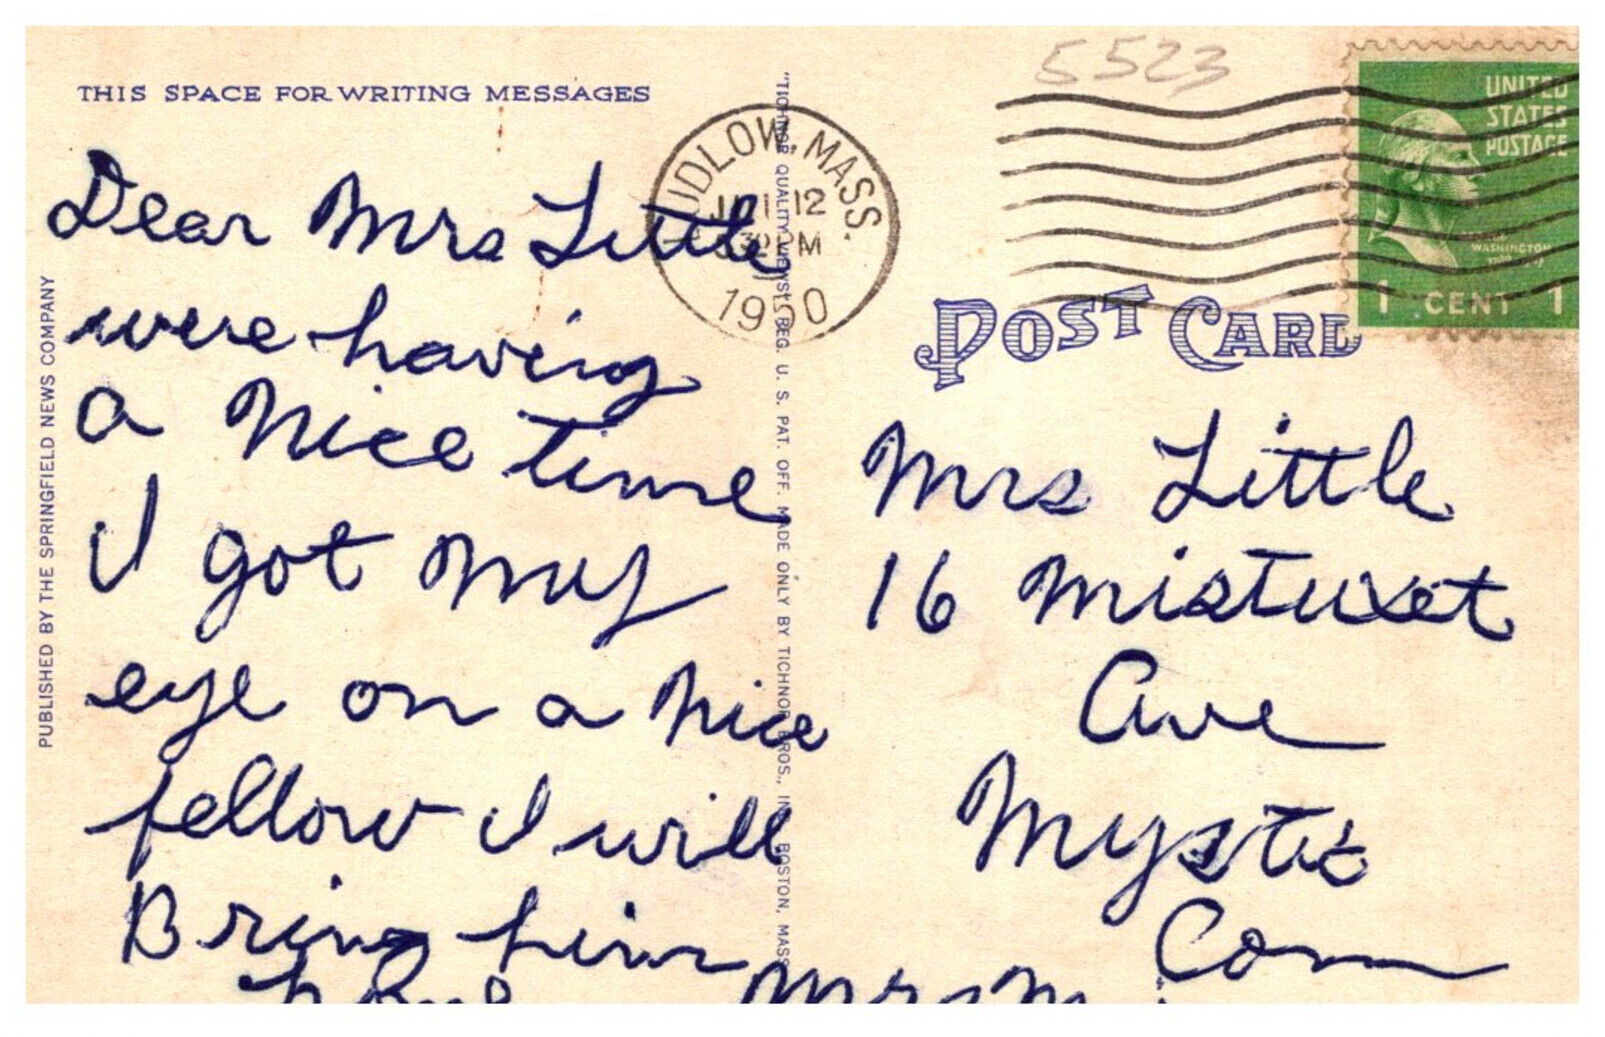 THIS SPACE FOR WRITING MESSAGES
Dear Mrs Little
were having
a nice time
I got my
eye on a nice
fellow I will
Bring him
home
PUBLISHED BY THE SPRINGFIELD NEWS COMPANY
"TICHNOR QUALITY VIEWS" REG. U. S. PAT. OFF. MADE ONLY BY TICHNOR BROS., INC., BOSTON, MASS.
LUDLOW, MASS.
12
30 PM
1950
5523
UNITED
STATES
POSTAGE
WASHINGTON
1 CENT 1
POST CARD
Mrs Little
16 Mistuxet
Ave
Mystic
Conn